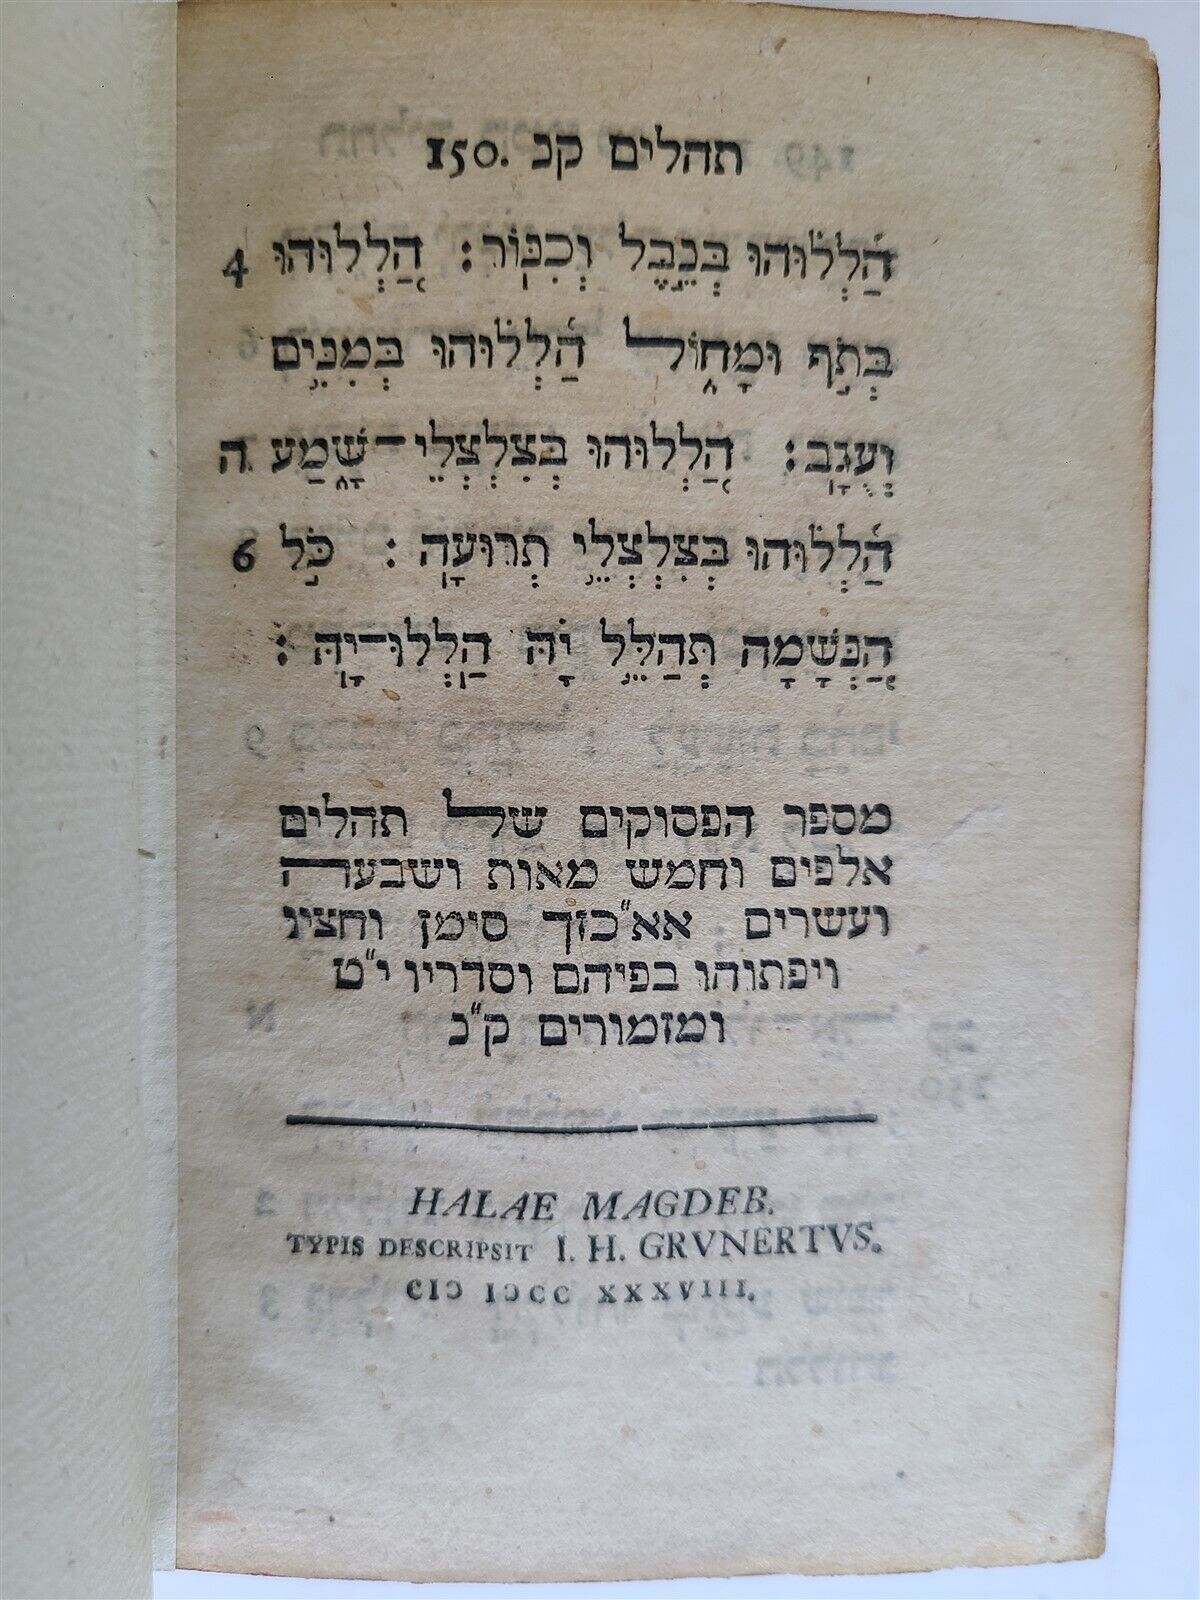 תהלים קנ 150.
הַ֭לְלוּהוּ בְּנֵ֣בֶל וְכִנּֽוֹר׃ הַֽלְלוּהוּ 4
בְּתֹ֣ף וּמָח֑וֹל הַ֝לְל֗וּהוּ בְּמִנִּ֥ים
וְעֻגָֽב׃ הַֽלְלוּהוּ בְצִלְצְלֵי־שָׁ֑מַע ה
הַ֝לְל֗וּהוּ בְּצִלְצְלֵ֥י תְרוּעָֽה׃ כֹּ֣ל 6
הַ֭נְּשָׁמָה תְּהַלֵּ֥ל יָ֗הּ הַֽלְלוּ־יָֽהּ׃
מספר הפסוקים של תהלים
אלפים וחמש מאות ושבעה
ועשרים אא״כזך סימן וחציו
ויפתוהו בפיהם וסדריו י״ט
ומזמורים ק״נ
HALAE MAGDEB.
TYPIS DESCRIPSIT I. H. GRVNERTVS.
CIↃ IↃCC XXXVIII.